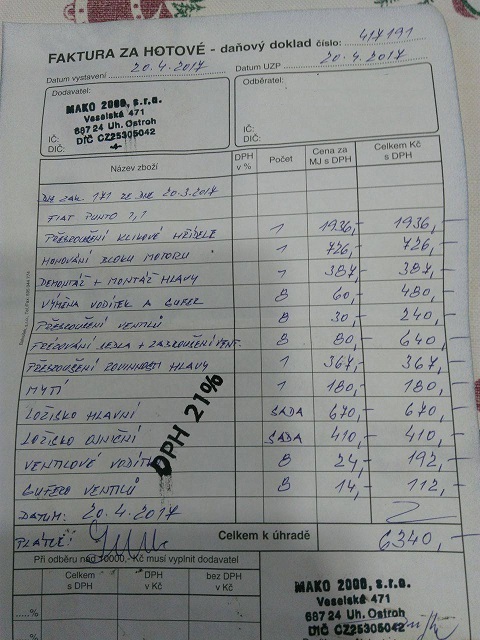 FAKTURA ZA HOTOVÉ - daňový doklad číslo: 417191
Datum vystavení 20.4.2017 Datum UZP 20.4.2017
Dodavatel: Odběratel:
MAKO 2000, s.r.o.
Veselská 471
687 24 Uh. Ostroh
IČ: DIČ CZ25305042 IČ:
DIČ: -4- DIČ:
Název zboží DPH v % Počet Cena za MJ s DPH Celkem Kč s DPH
DLE ZAK. 171 ZE DNE 20.3.2017
FIAT PUNTO 1,1
PŘEBROUŠENÍ KLIKOVÉ HŘÍDELE 1 1936,- 1936,-
HONOVÁNÍ BLOKU MOTORU 1 726,- 726,-
DEMONTÁŽ + MONTÁŽ HLAVY 1 387,- 387,-
VÝMĚNA VODÍTEK A GUFER 8 60,- 480,-
PŘEBROUŠENÍ VENTILŮ 8 30,- 240,-
FRÉZOVÁNÍ SEDLA + ZABROUŠENÍ VENT. 8 80,- 640,-
PŘEBROUŠENÍ ROVINNOSTI HLAVY 1 367,- 367,-
MYTÍ 1 180,- 180,-
LOŽISKO HLAVNÍ SADA 670,- 670,-
LOŽISKO OJNIČNÍ SADA 410,- 410,-
VENTILOVÉ VODÍTK 8 24,- 192,-
GUFERO VENTILŮ 8 14,- 112,-
DPH 21%
DATUM: 20.4.2017
PLATCE: Celkem k úhradě 6340,-
Při odběru nad 10000,- Kč musí vyplnit dodavatel
Celkem s DPH DPH v Kč bez DPH v Kč
.....%
MAKO 2000, s.r.o.
Veselská 471
687 24 Uh. Ostroh
DIČ CZ25305042